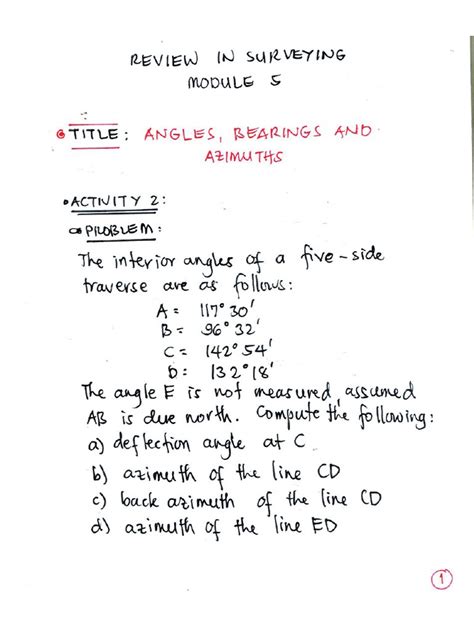 REVIEW IN SURVEYING
MODULE 5
TITLE: ANGLES, BEARINGS AND
AZIMUTHS
ACTIVITY 2:
PROBLEM:
The interior angles of a five-side
traverse are as follows:
A = 117° 30'
B = 96° 32'
C = 142° 54'
D: 132° 18'
The angle E is not measured, assumed
AB is due north. Compute the following:
a) deflection angle at C
b) azimuth of the line CD
c) back azimuth of the line CD
d) azimuth of the line ED
1